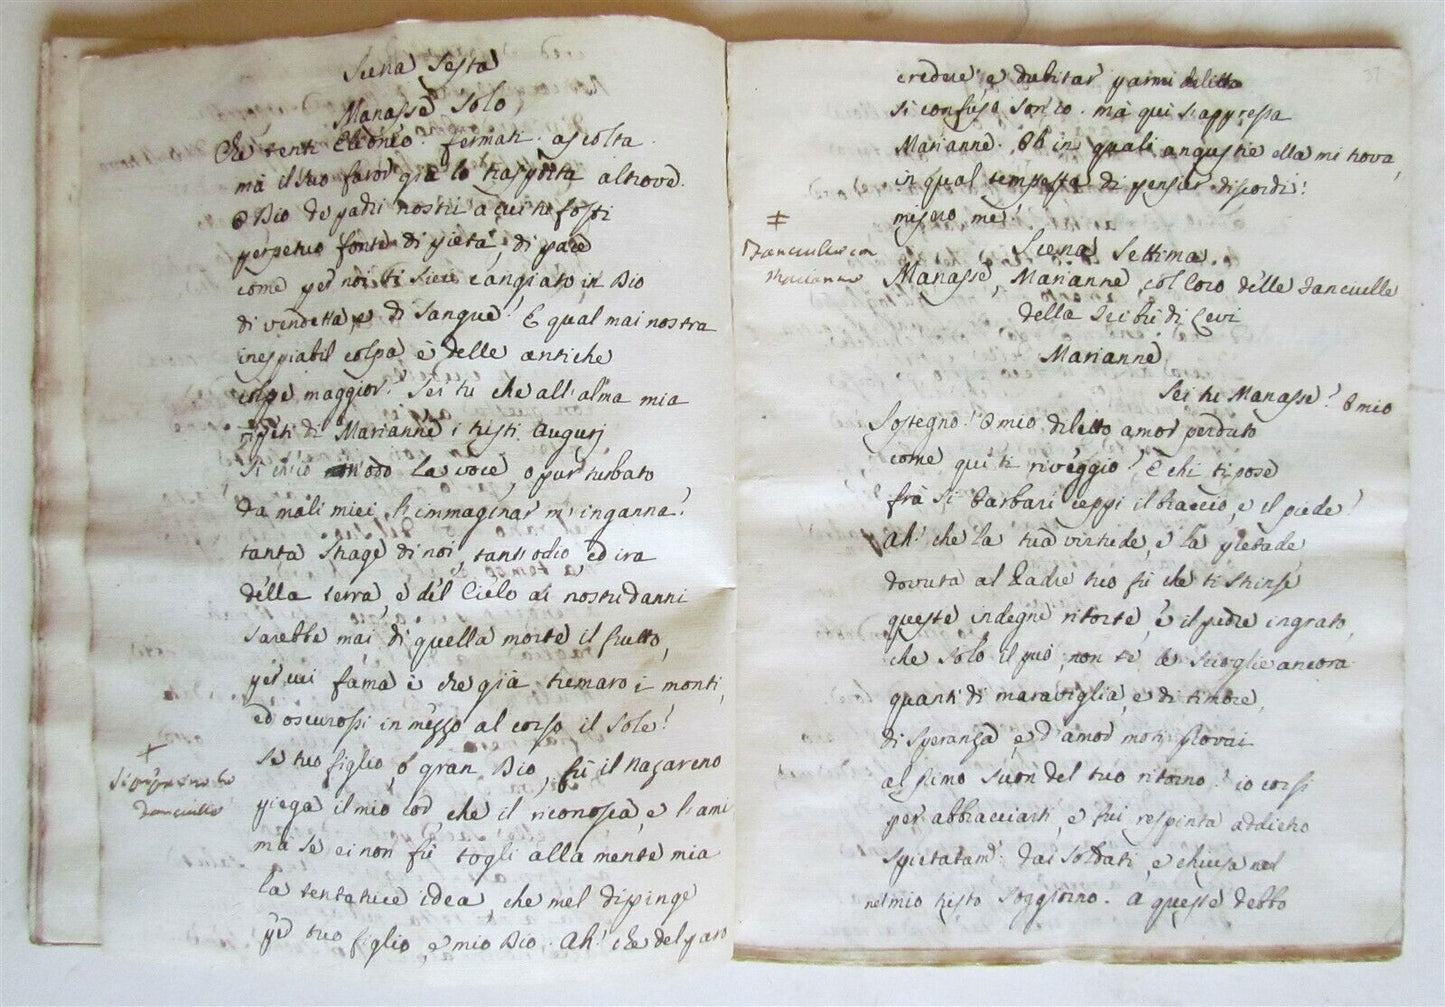 Scena Sesta
Manasse solo
Che senti Eleoneo. fermati. ascolta.
mà il suo furor già lo trasporta altrove.
O Dio de padri nostri a cui tu fosti
perpetuo fonte di pietà, di pace
come per noi ti sieci cangiato, in Dio
di vendetta, e di sangue! E qual mai nostra
inespiabil colpa è delle antiche
colpe maggior? Sei tu che all'alma mia
ripeti di Marianne i tristi augurj
Si ch'io n'odo la voce, o pur turbato
da mali miei l'immaginar m'inganna?
tanta strage di noi, tant'odio, ed ira
della terra, e del Cielo ai nostri danni
sarebbe mai di quella morte il frutto,
per cui fama è che già tremaro i monti,
ed oscurossi in mezzo al corso il Sole?
Se tuo figlio, o gran Dio, fù il Nazareno
piega il mio cor, che il riconosca, e l'ami
ma se ei non fù togli alla mente mia
la tentatrice idea, che mel dipinge
per tuo figlio, e mio Dio. Ah! che del paro
+
Si
Fanciulle
37
credere e dubitar parmi delitto
Si confuso son'io. mà qui s'appressa
Marianne. Oh in quali angustie ella mi trova,
in qual tempesta di pensier discordi!
misero me!
‡
Fanciulle con
Marianne
Scena Settima
Manasse, Marianne, col Coro delle Fanciulle
della Tribù di Levi
Marianne
Sei tu Manasse? O mio
Sostegno! O mio diletto amor perduto
come qui ti riveggio! E chi ti pose
frà si barbari ceppi il braccio, e il piede?
Ah! che la tua virtude, e la pietade
dovuta al Padre tuo fù che ti strinse
queste indegne ritorte, e il piede ingrato,
che solo il può, non te le scioglie ancora
quanti di maraviglia, e di timore,
di speranza, e d'amor moti provai
al primo suon del tuo ritorno! io corsi
per abbracciarti, e fui respinta addietro
spietatam: dai soldati, e chiusa nel
nel mio tristo soggiorno. A queste debbo